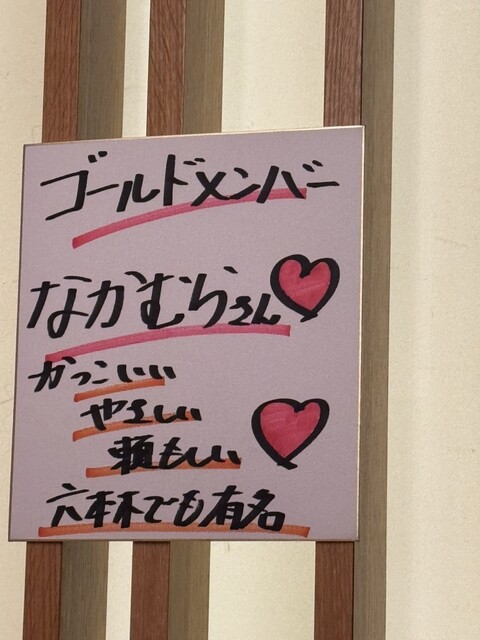 ゴールドメンバー
なかむらさん
かっこいい
やさしい
頼もしい
六本木でも有名